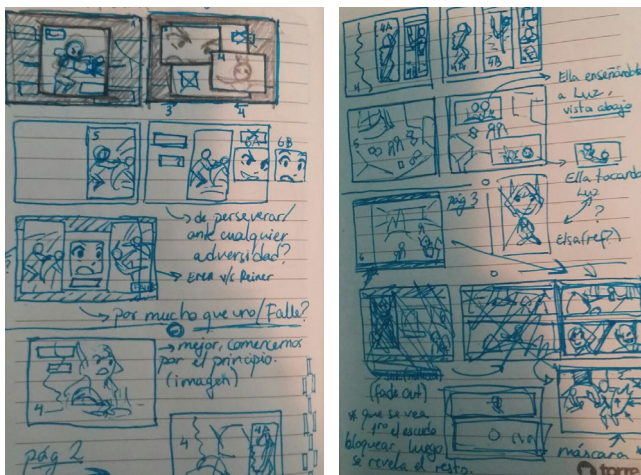 1
4
3
4
5
6A
6B
de perseverar/
ante cualquier
adversidad?
Eren v/s Reiner
Por mucho que uno/Falle?
mejor, comencemos
por el principio.
(imagen)
4
4
pág 2
4A
4B
Ella enseñándole
a Luz,
vista abajo
5
Ella tocando
Luz
pág 3
?
Elsa(ref?)
6
(fade out)
* que se vea
1ro el escudo
bloquear, luego
se revela el resto.
máscara